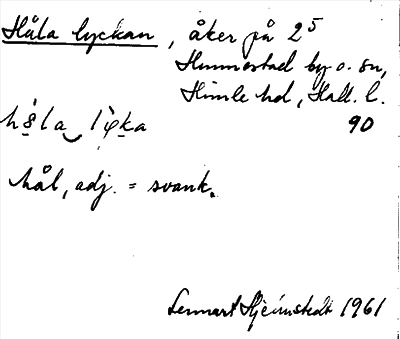 Håla lyckan, åker på 2⁵
Hunnestad by o. sn,
Himle hd, Hall. l.
90
hål, adj. = svank.
Lennart Hjelmstedt 1961